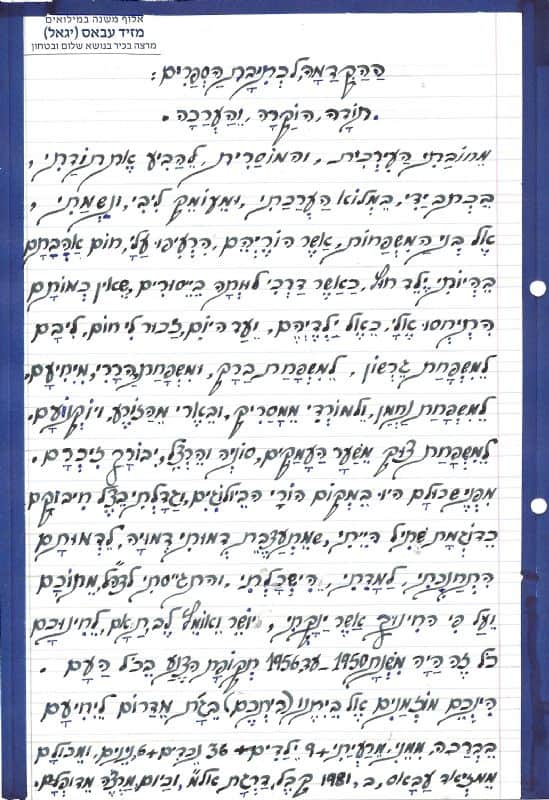 אלוף משנה במילואים
מזיד עבאס (יגאל)
מרצה בכיר בנושא שלום ובטחון
הַהַקְדָמָה, לִכְתִיבַת הַסְפָרִים:
תוֹדָה, הוֹקָרָה, וְהַעֲרָכָה.
מֵחוֹבָתִי הָעֶרְכִּית, וְהַמוּסָרִית, לְהַבִּיעַ אֶת תוֹדָתִי,
בִּכְתַב יָדִי, בִּמְלוֹא הַעֲרָכָתִי, וּמֵעוֹמֶק לִיבִּי, וְנִשְׁמָתִי,
אֶל בְּנֵי הַמִשְׁפָּחוֹת, אֲשֶׁר הוֹרֵיהֶם, הִרְעִיפוּ עָלַי, חוֹם אַהֲבָתָם
בִּהְיוֹתִי, יֶלֶד חוּץ, כַּאֲשֶׁר דַרְכִּי לוּוְתָה בְּיִיסוּרִים, שֶׁאֵין כְּמוֹתָם
הִתְיַחֲסוּ אֵלַי, כְּאֶל יַלְדֵיהֶם, וְעַד הַיוֹם, זָכוּר לִי חוֹם, לִיבָּם
לְמִשְׁפַּחַת גֵרְשׁוֹן, לְמִשְׁפַּחַת בָּרָק, וּמִשְׁפַּחַת, הֲרָרִי, מִיְחִיעָם,
לְמִשְׁפַּחַת נַחְמָן, וְלְמוֹרְדִי מִמָסָרִיק, וּבְאֵרִי מֵהַזוֹרֵעַ, וְיוֹקְנְעָם.
לְמִשְׁפַּחַת צוּק מִשַׁעַר הָעֲמָקִים, סוֹנְיָה וְהֶרְצֶל, יְבוֹרָךְ זִיכְרָם.
מִפְּנֵי שֶׁכּוּלָם הָיוּ בִּמְקוֹם הוֹרַי הַבִּיוֹלוֹגִים, וְגָדַלְתִי בְּצֵל חִיבּוּקָם
כְּדוּגְמַת שְׁתִיל הָיִיתִי, שֶׁמִתְעַצֶבֶת דְמוּתִי דְמוּיָה, לִדְמוּתָם
הִתְחַנַכְתִי, לָמַדְתִי, הִישְׂכַּלְתִי, וְהִתְגַיַיסְתִי לְצַהַ"ל, מִתוֹכָם
וְעַל פִּי הַחִינוּךְ אֲשֶׁר יָנַקְתִי, יוֹשֶׁר וְאוֹמֶץ לֵב תָאַם, לְחִינוּכָם
כָּל זֶה הָיָה מִשְׁנַת 1950 – עַד 1956 תְקוּפַת הַצֶנַע בְּכָל הָעָם.
הִינְכֶם מוּזְמָנִים אֶל בֵּיתֵנוּ (בֵּיתְכֶם) בְּגַ'ת מִדָרוֹם לִיְחִיעָם
בִּבְרָכָה, מִמֶנִי, מֵרַעְיָתִי + 9 יְלָדִים + 36 נְכָדִים + 6, נִינִים, וּמִכּוּלָם
מִמַזְיָאד עַבָּאס, בְּ, 1981 קִבֵּל, דַרְגַת אל"מ, וְכַיוֹם, מַרְצֶה מְדוּפְּלָם.